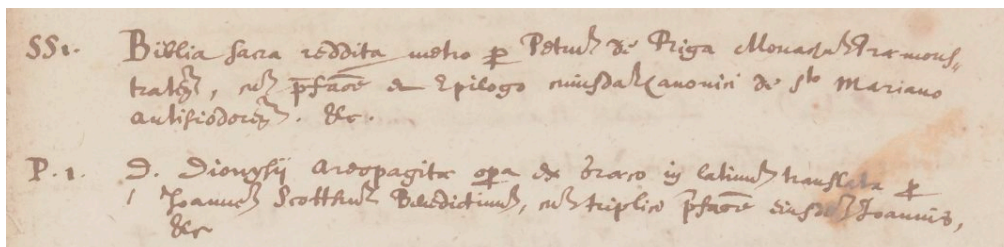 SS1. Biblia sacra reddita metro p Petrum de Riga Monachum Præmons-
tratem, cum pfacē & Epilogo cuiusdam Canonici de Sto Mariano
Antisiodorem. &c.
P.1. D. Dionysij Areopagitæ opa ex Græco in latinum translata p
Joannem Scottum Benedictinum, cum triplice pfacē eiusdem Joannis,
&c